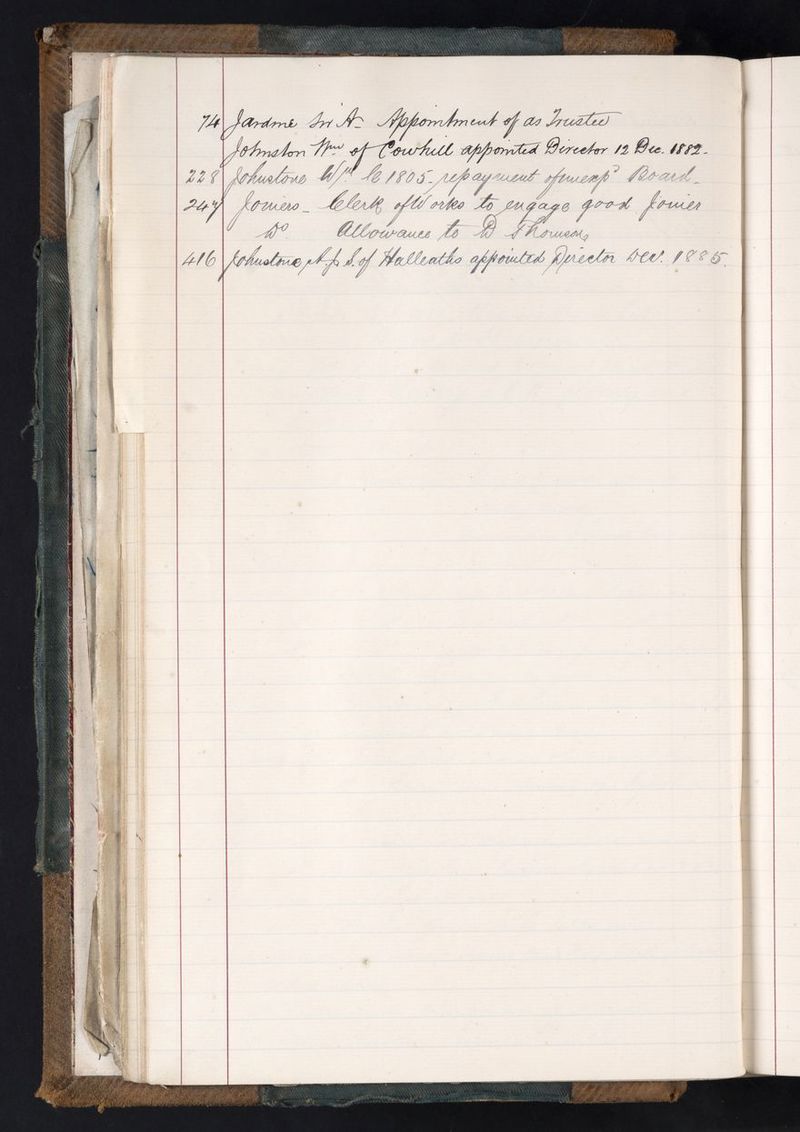 74 Jardine Sir A- Appointment of as Trustee
Johnston Wm of Cowhill appointed Director 12 Dec. 1882.
228 Johnstone Wm C 1805- repayment of unexpd Board-
247 Joiners- Clerk of Works to engage good Joiner
Do Allowance to D Thomson
416 Johnstone of Halleaths appointed Director Dec. 1885.